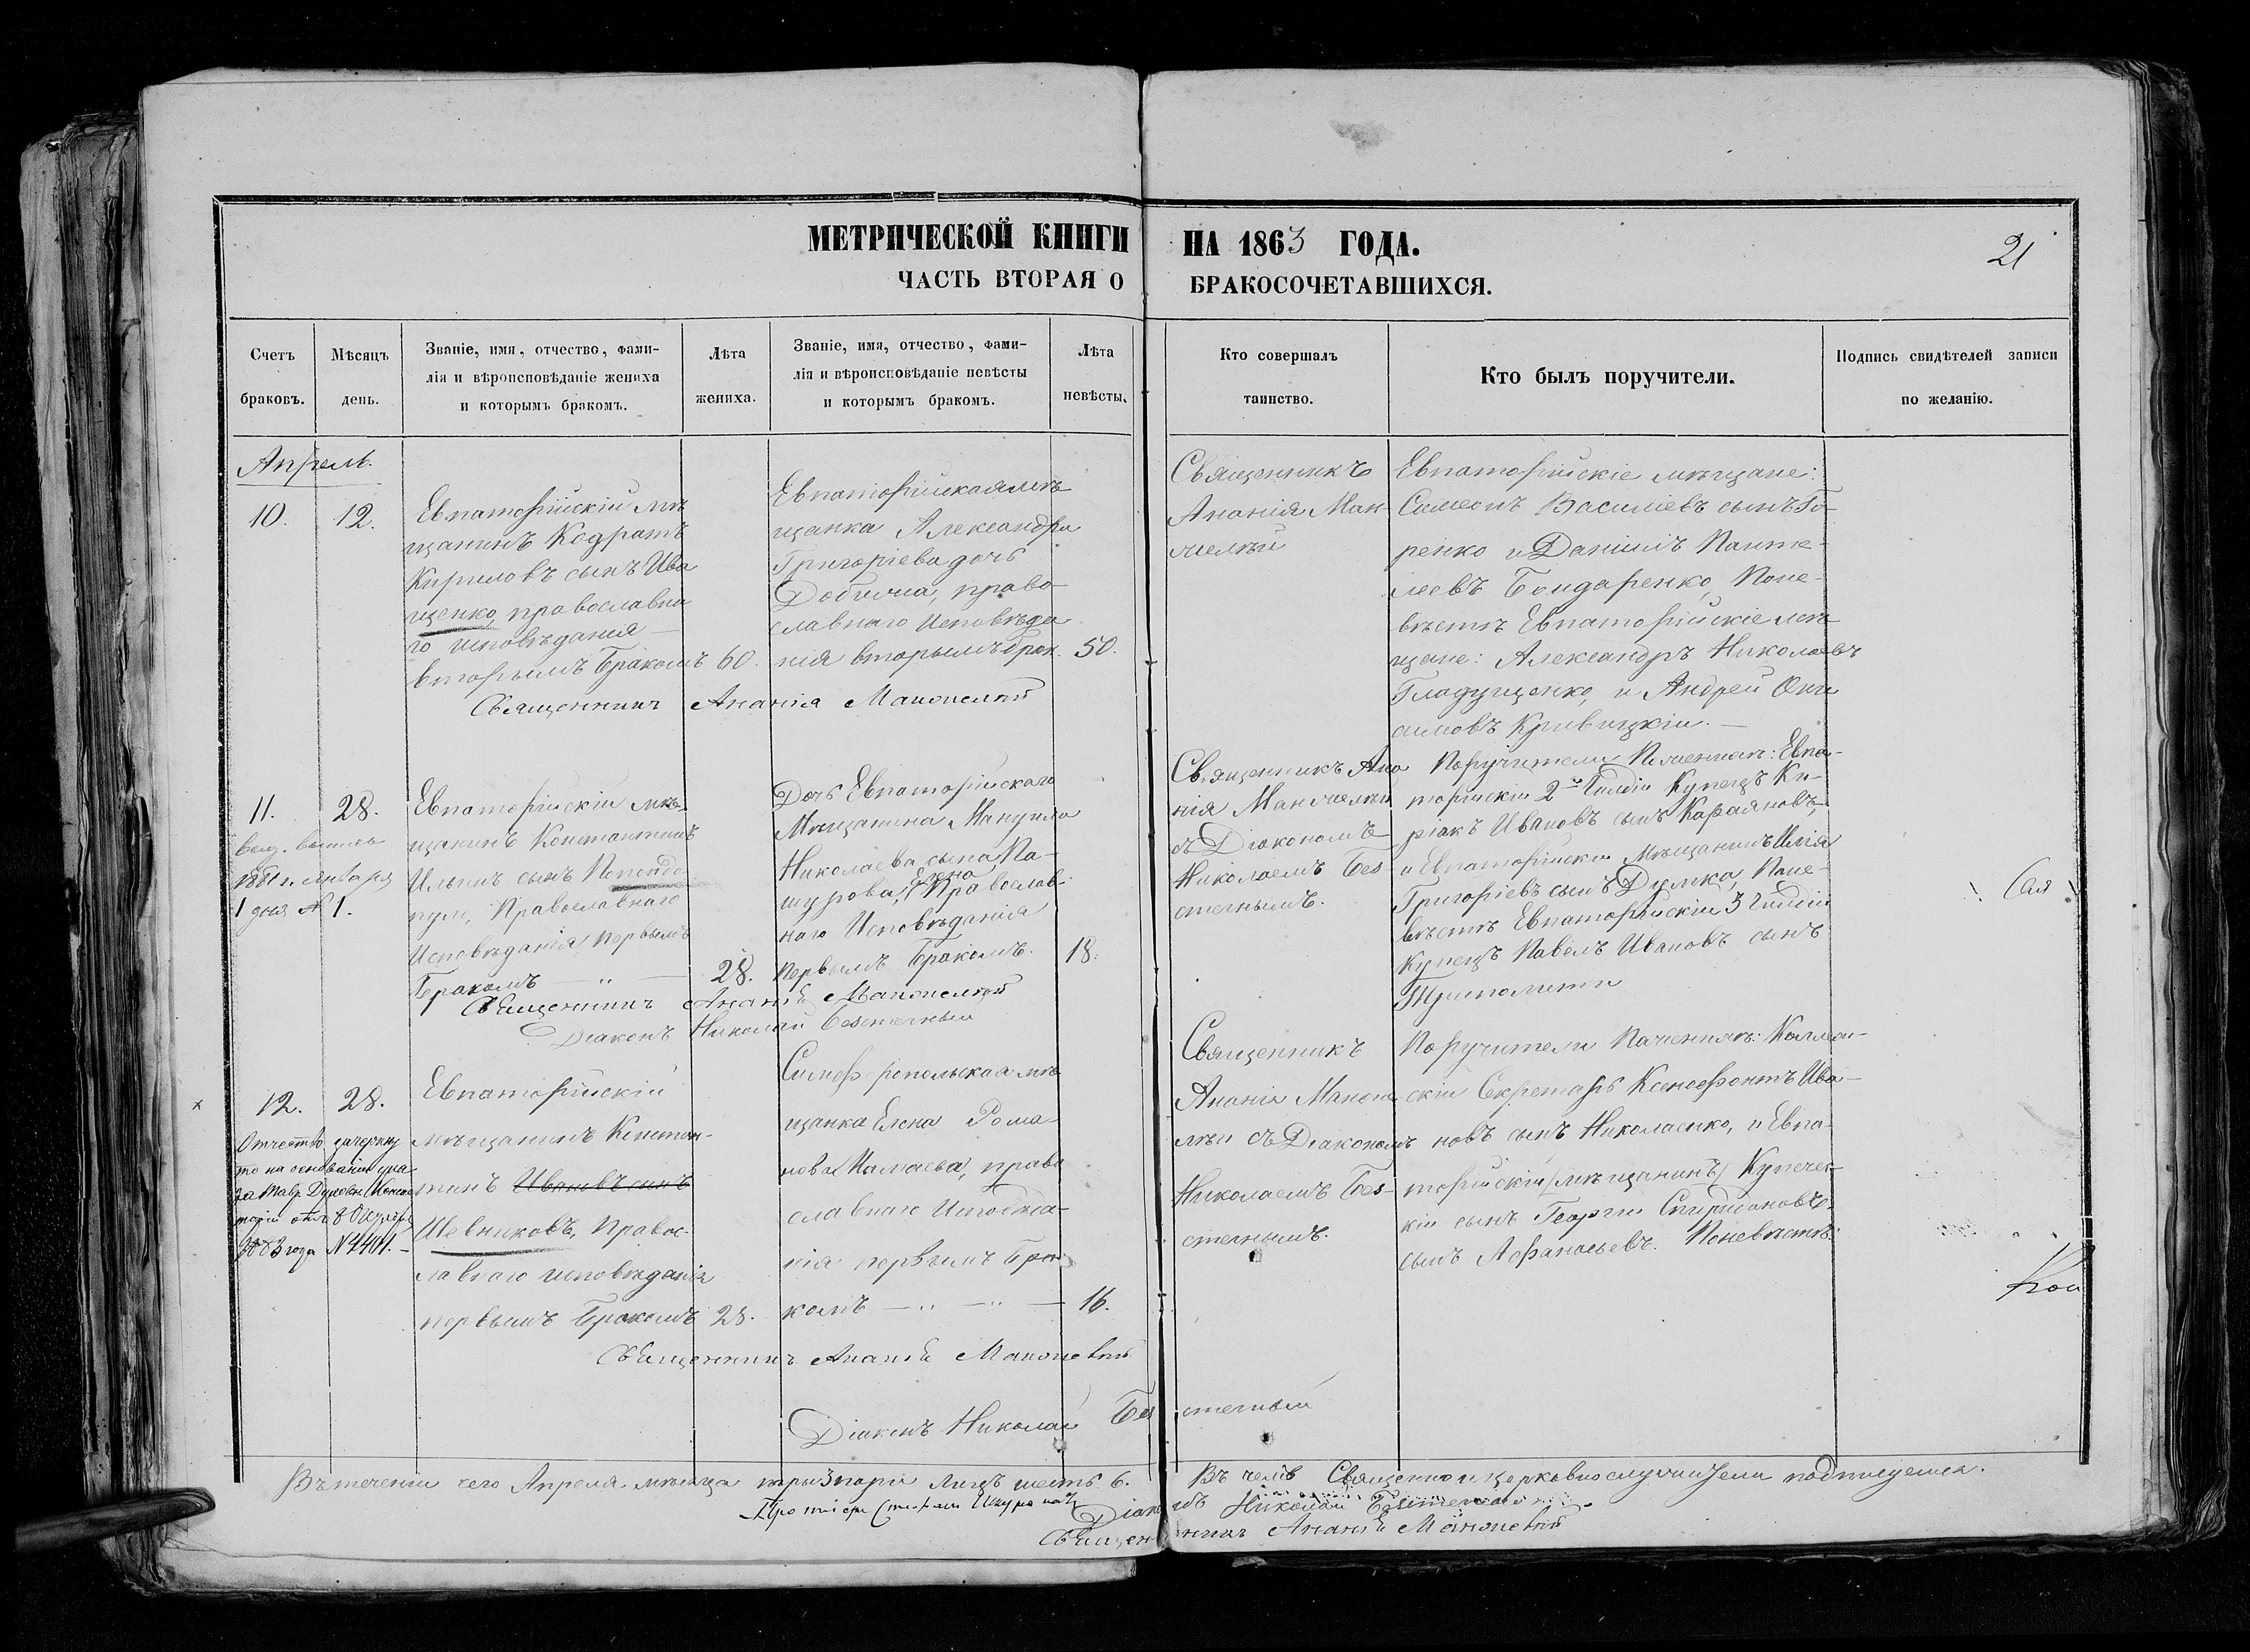 МЕТРИЧЕСКОЙ КНИГИ НА 1863 ГОДА.
21
ЧАСТЬ ВТОРАЯ О БРАКОСОЧЕТАВШИХСЯ.
Счетъ браковъ.
Мѣсяцъ день.
Званіе, имя, отчество, фами-
лія и вѣроисповѣданіе жениха
и которымъ бракомъ.
Лѣта жениха.
Званіе, имя, отчество, фами-
лія и вѣроисповѣданіе невѣсты
и которымъ бракомъ.
Лѣта невѣсты.
Кто совершалъ
таинство.
Кто былъ поручители.
Подпись свидѣтелей записи
по желанію.
Апрель.
10.
12.
Евпаторійскій мѣ
щанинъ Кодратъ
Кириловъ сынъ Ива
щенко, православна
го исповѣданія
вторымъ бракомъ
60.
Евпаторійская мѣ
щанка Александра
Григоріева дочь
право-
славнаго исповѣда
нія вторымъ брак.
50.
Священникъ
Ананія Ман-
Евпаторійскіе мѣщане:
Симеонъ Василіевъ сынъ Го-
ренко и Даніилъ Панте-
леевъ Бондаренко, Поне-
вѣстѣ Евпаторійскіе мѣ
щане: Александръ Николаевъ
Гладущенко, и Андрей Они
симовъ Кривицкій.
Священникъ Ананія
11.
28.
выд. выпись
1881 г. Января
1 дня № 1.
Евпаторійскій мѣ-
щанинъ Константинъ
Ильинъ сынъ Попандо
пуло, Православнаго
Исповѣданія, первымъ
бракомъ
28.
Дочь Евпаторійскаго
Мѣщанина Мануила
Николаева сына Па-
шурова, Елена Православ-
наго Исповѣданія
первымъ бракомъ.
18.
Священникъ Ана
нія
съ Діакономъ
Николаемъ Без-
стечнымъ.
Поручители Поженихѣ: Евпа-
торійскій 2й Гилдіи Купецъ Ки-
ріакъ Ивановъ сынъ Караяновъ,
и Евпаторійскій Мѣщанинъ Илія
Григоріевъ сынъ Думка, Поне-
вѣстѣ Евпаторійскій 3 Гилдіи
Купецъ Павелъ Ивановъ сынъ
Священникъ Ананія
Діаконъ Николай
12.
28.
Отчество зачеркну
то на основаніи ука
за Тавр. Духовн. Консис
торіи отъ 8 Октября
1883 года № 4401.
Евпаторійскій
мѣщанинъ Констан-
тинъ Ивановъ сынъ
Шевниковъ, Правос-
лавнаго исповѣданія
первымъ бракомъ
28.
Симферопольская мѣ
щанка Елена Рома
нова право
славнаго Исповѣда-
нія первымъ бра
комъ
16.
Священникъ
Ананія
съ Діакономъ
Николаемъ Без-
стечнымъ.
Поручители Поженихѣ:
Секретарь Ксенофонтъ Ива-
новъ сынъ Николаенко, и Евпа-
торійскій (мѣщанинъ) Купечес-
кій сынъ Георгій Спиридоновъ
сынъ Афанасьевъ. Поневѣстѣ:
Священникъ Ананія
Діаконъ Николай
Въ теченіи сего Апреля мѣсяца три 3 пары Лицъ шесть 6. Въ чемъ Священно и церковнослужители подписуемся.
Діаконъ Николай
Священникъ Ананія